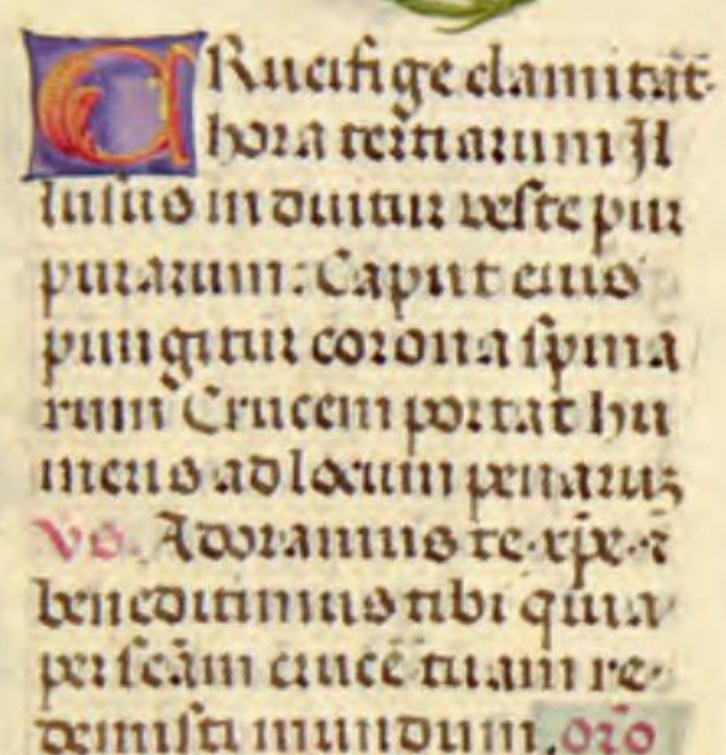 CRucifige clamitāt
hora tertiarum Il
lusus induitur veste pur
purarum: Caput eius
pungitur corona spina
rum Crucem portat hu
meris ad locum penaruꝫ
Vs. Adoramus te·xp̄e·⁊
benedicimus tibi quia
per scām crucē tuam re-
demisti mundum. or̄o